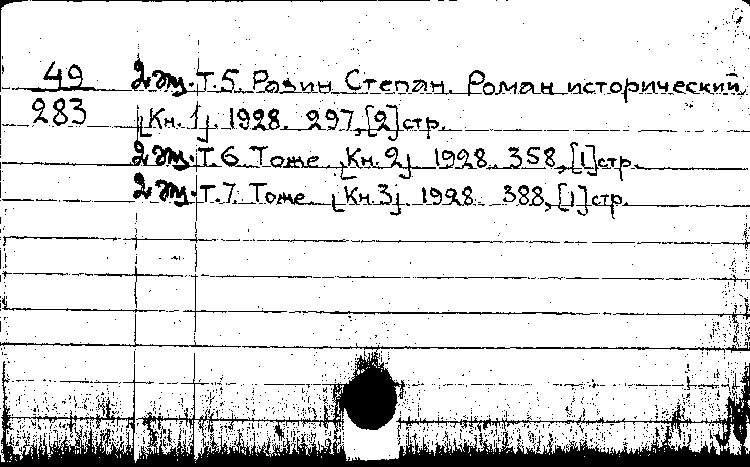 49 2 эк. Т.5. Разин Степан. Роман исторический.
283 [Кн. 1]. 1928. 297,[2]стр.
2 эк. Т.6. Тоже. [Кн. 2]. 1928. 358,[1]стр.
2 эк. Т.7. Тоже. [Кн. 3]. 1928. 388,[1]стр.